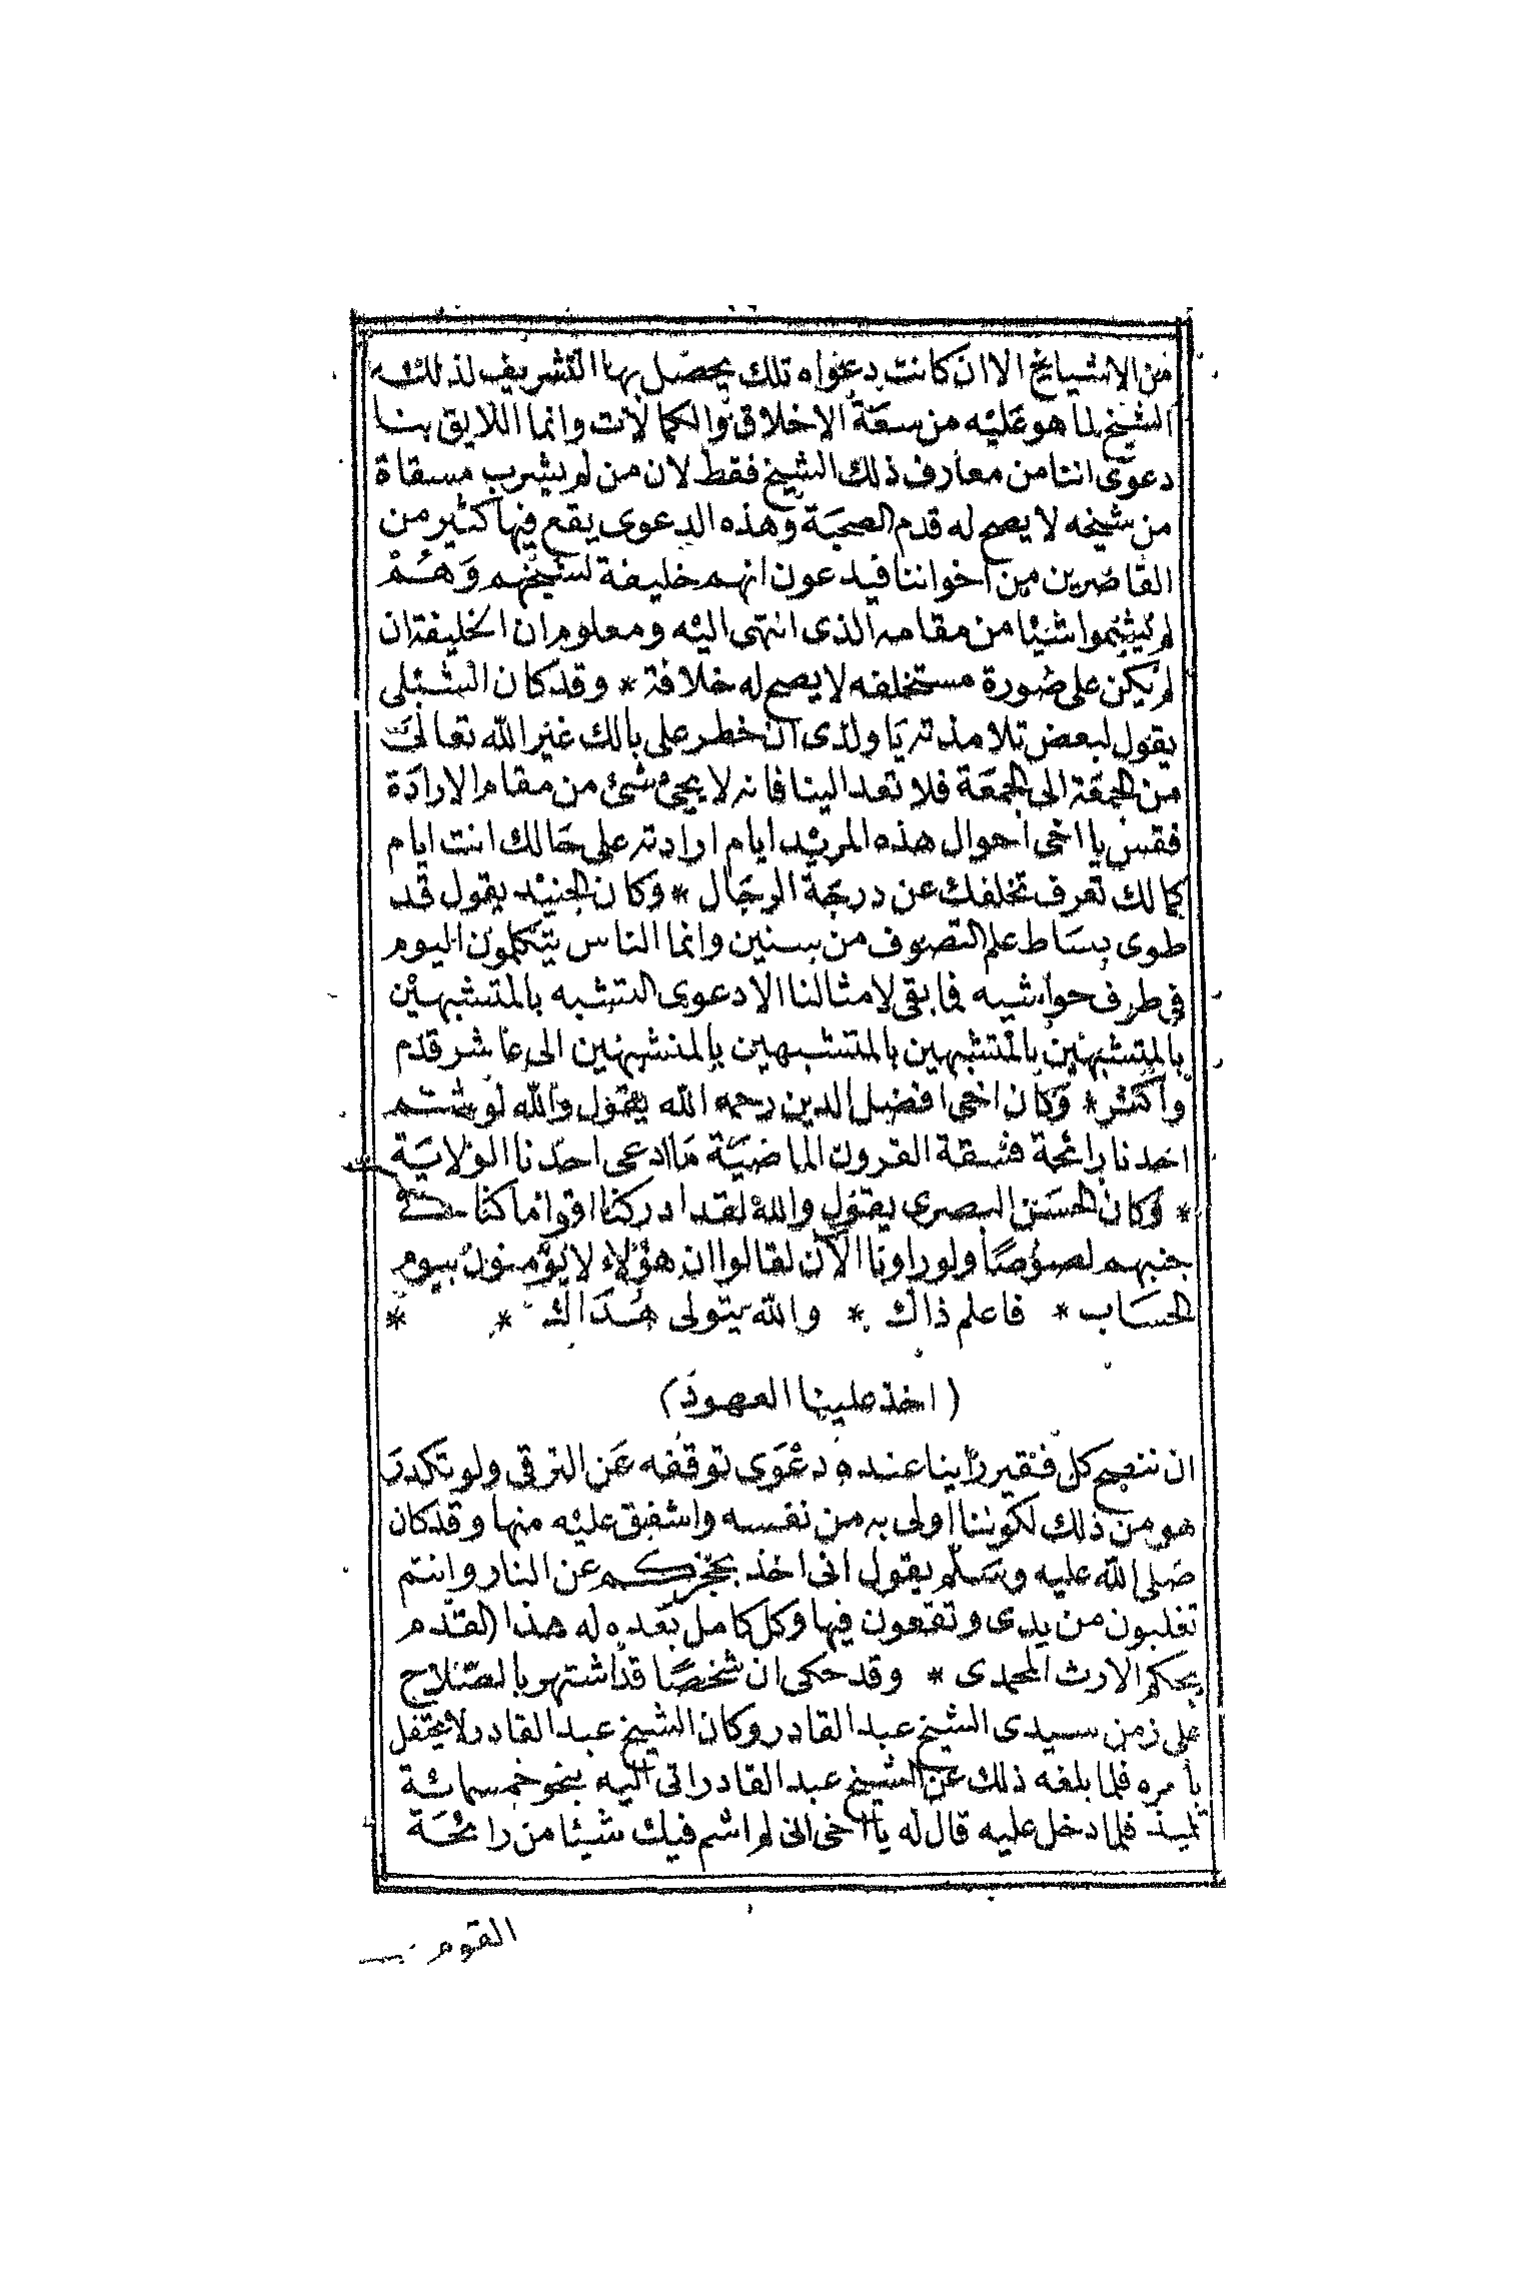 من الاشياخ الا ان كانت دعواه تلك يحصل بها التشريف لذلك
الشيخ لما هو عليه من سعة الاخلاق والكمالات وانما اللايق بنا
دعوى اننا من معارف ذلك الشيخ فقط لان من لم يشرب مسقاة
من شيخه لا يصح له قدم الصحبة وهذه الدعوى يقع فيها كثير من
القاصرين من اخواننا فيدعون انهم خليفة لشيخهم وهم
لم يشموا شيئا من مقامه الذى انتهى اليه ومعلوم ان الخليفة ان
لم يكن على صورة مستخلفه لا يصح له خلافة * وقد كان الشبلى
يقول لبعض تلامذته يا ولدى ان خطر على بالك غير الله تعالى
من الجمعة الى الجمعة فلا تعد الينا فانه لا يجئ شئ من مقام الارادة
فقس يا اخى احوال هذه المريد ايام ارادته على حالك انت ايام
كمالك تعرف تخلفك عن درجة الرجال * وكان الجنيد يقول قد
طوى بساط علم التصوف من سنين وانما الناس يتكلمون اليوم
فى طرف حواشيه فما بقى لامثالنا الا دعوى التشبه بالمتشبهين
بالمتشبهين بالمتشبهين بالمتشبهين بالمتشبهين الى عاشر قدم
واكثر * وكان اخى افضل الدين رحمه الله يقول والله لو شتم
احدنا رائحة فسقة القرون الماضية ما ادعى احدنا الولاية
* وكان الحسن البصرى يقول والله لقد ادركنا اقواما كنا فى
جنبهم لصوصا ولو راونا الآن لقالوا ان هؤلاء لا يؤمنون بيوم
الحساب * فاعلم ذاك * والله يتولى هداك * *
( اخذ علينا العهود )
ان ننصح كل فقير راينا عنده دعوى توقفه عن الترقى ولو تكدر
هو من ذلك لكوننا اولى به من نفسه واشفق عليه منها وقد كان
صلى الله عليه وسلم يقول انى اخذ بحجزكم عن النار وانتم
تغلبون من يدى وتقعون فيها وكل كامل بعده له هذا القدم
بحكم الارث المحمدى * وقد حكى ان شخصا قد اشتهر بالصلاح
على زمن سيدى الشيخ عبد القادر وكان الشيخ عبد القادر لا يحتفل
بامره فلما بلغه ذلك عن الشيخ عبد القادر اتى اليه بنحو خمسمائة
تلميذ فلما دخل عليه قال له يا اخى انى لم اشم فيك شيئا من رائحة
القوم